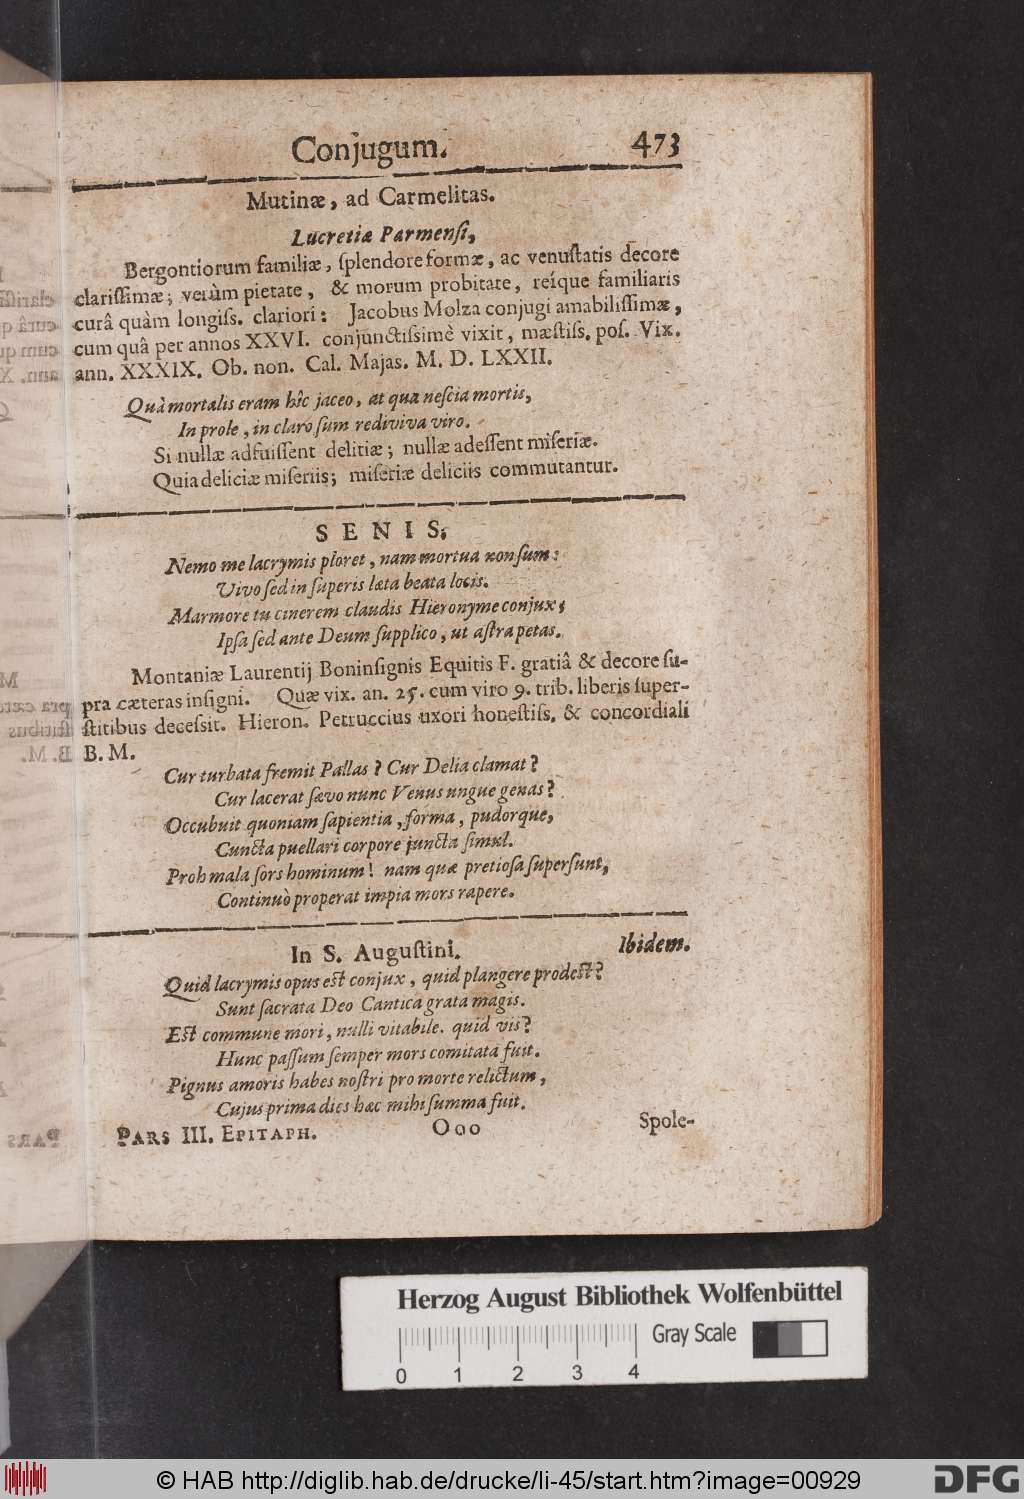 Conjugum. 473
Mutinæ, ad Carmelitas.
Lucretiæ Parmensi,
Bergontiorum familiæ, splendore formæ, ac venustatis decore
clarissimæ; verùm pietate, & morum probitate, reíque familiaris
curâ quàm longiss. clariori: Jacobus Molza conjugi amabilissimæ,
cum quâ per annos XXVI. conjunctissimè vixit, mæstiss. pos. Vix.
ann. XXXIX. Ob. non. Cal. Majas. M. D. LXXII.
Quà mortalis eram hîc jaceo, at qua nescia mortis,
In prole, in claro sum rediviva viro.
Si nullæ adfuissent delitiæ; nullæ adessent miseriæ.
Quia deliciæ miseriis; miseriæ deliciis commutantur.
SENIS.
Nemo me lacrymis ploret, nam mortua non sum:
Vivo sed in superis læta beata locis.
Marmore tu cinerem claudis Hieronyme conjux;
Ipsa sed ante Deum supplico, ut astra petas.
Montaniæ Laurentij Boninsignis Equitis F. gratiâ & decore su-
pra cæteras insigni. Quæ vix. an. 25. cum viro 9. trib. liberis super-
stitibus decessit. Hieron. Petruccius uxori honestiss. & concordiali
B. M.
Cur turbata fremit Pallas? Cur Delia clamat?
Cur lacerat sævo nunc Venus ungue genas?
Occubuit quoniam sapientia, forma, pudorque,
Cuncta puellari corpore juncta simul.
Proh mala sors hominum! nam quæ pretiosa supersunt,
Continuò properat impia mors rapere.
In S. Augustini. Ibidem.
Quid lacrymis opus est conjux, quid plangere prodest?
Sunt sacrata Deo Cantica grata magis.
Est commune mori, nulli vitabile. quid vis?
Hunc passum semper mors comitata fuit.
Pignus amoris habes nostri pro morte relictum,
Cujus prima dies hæc mihi summa fuit.
PARS III. EPITAPH. Ooo Spole-
Herzog August Bibliothek Wolfenbüttel
Gray Scale
0 1 2 3 4
© HAB http://diglib.hab.de/drucke/li-45/start.htm?image=00929
DFG